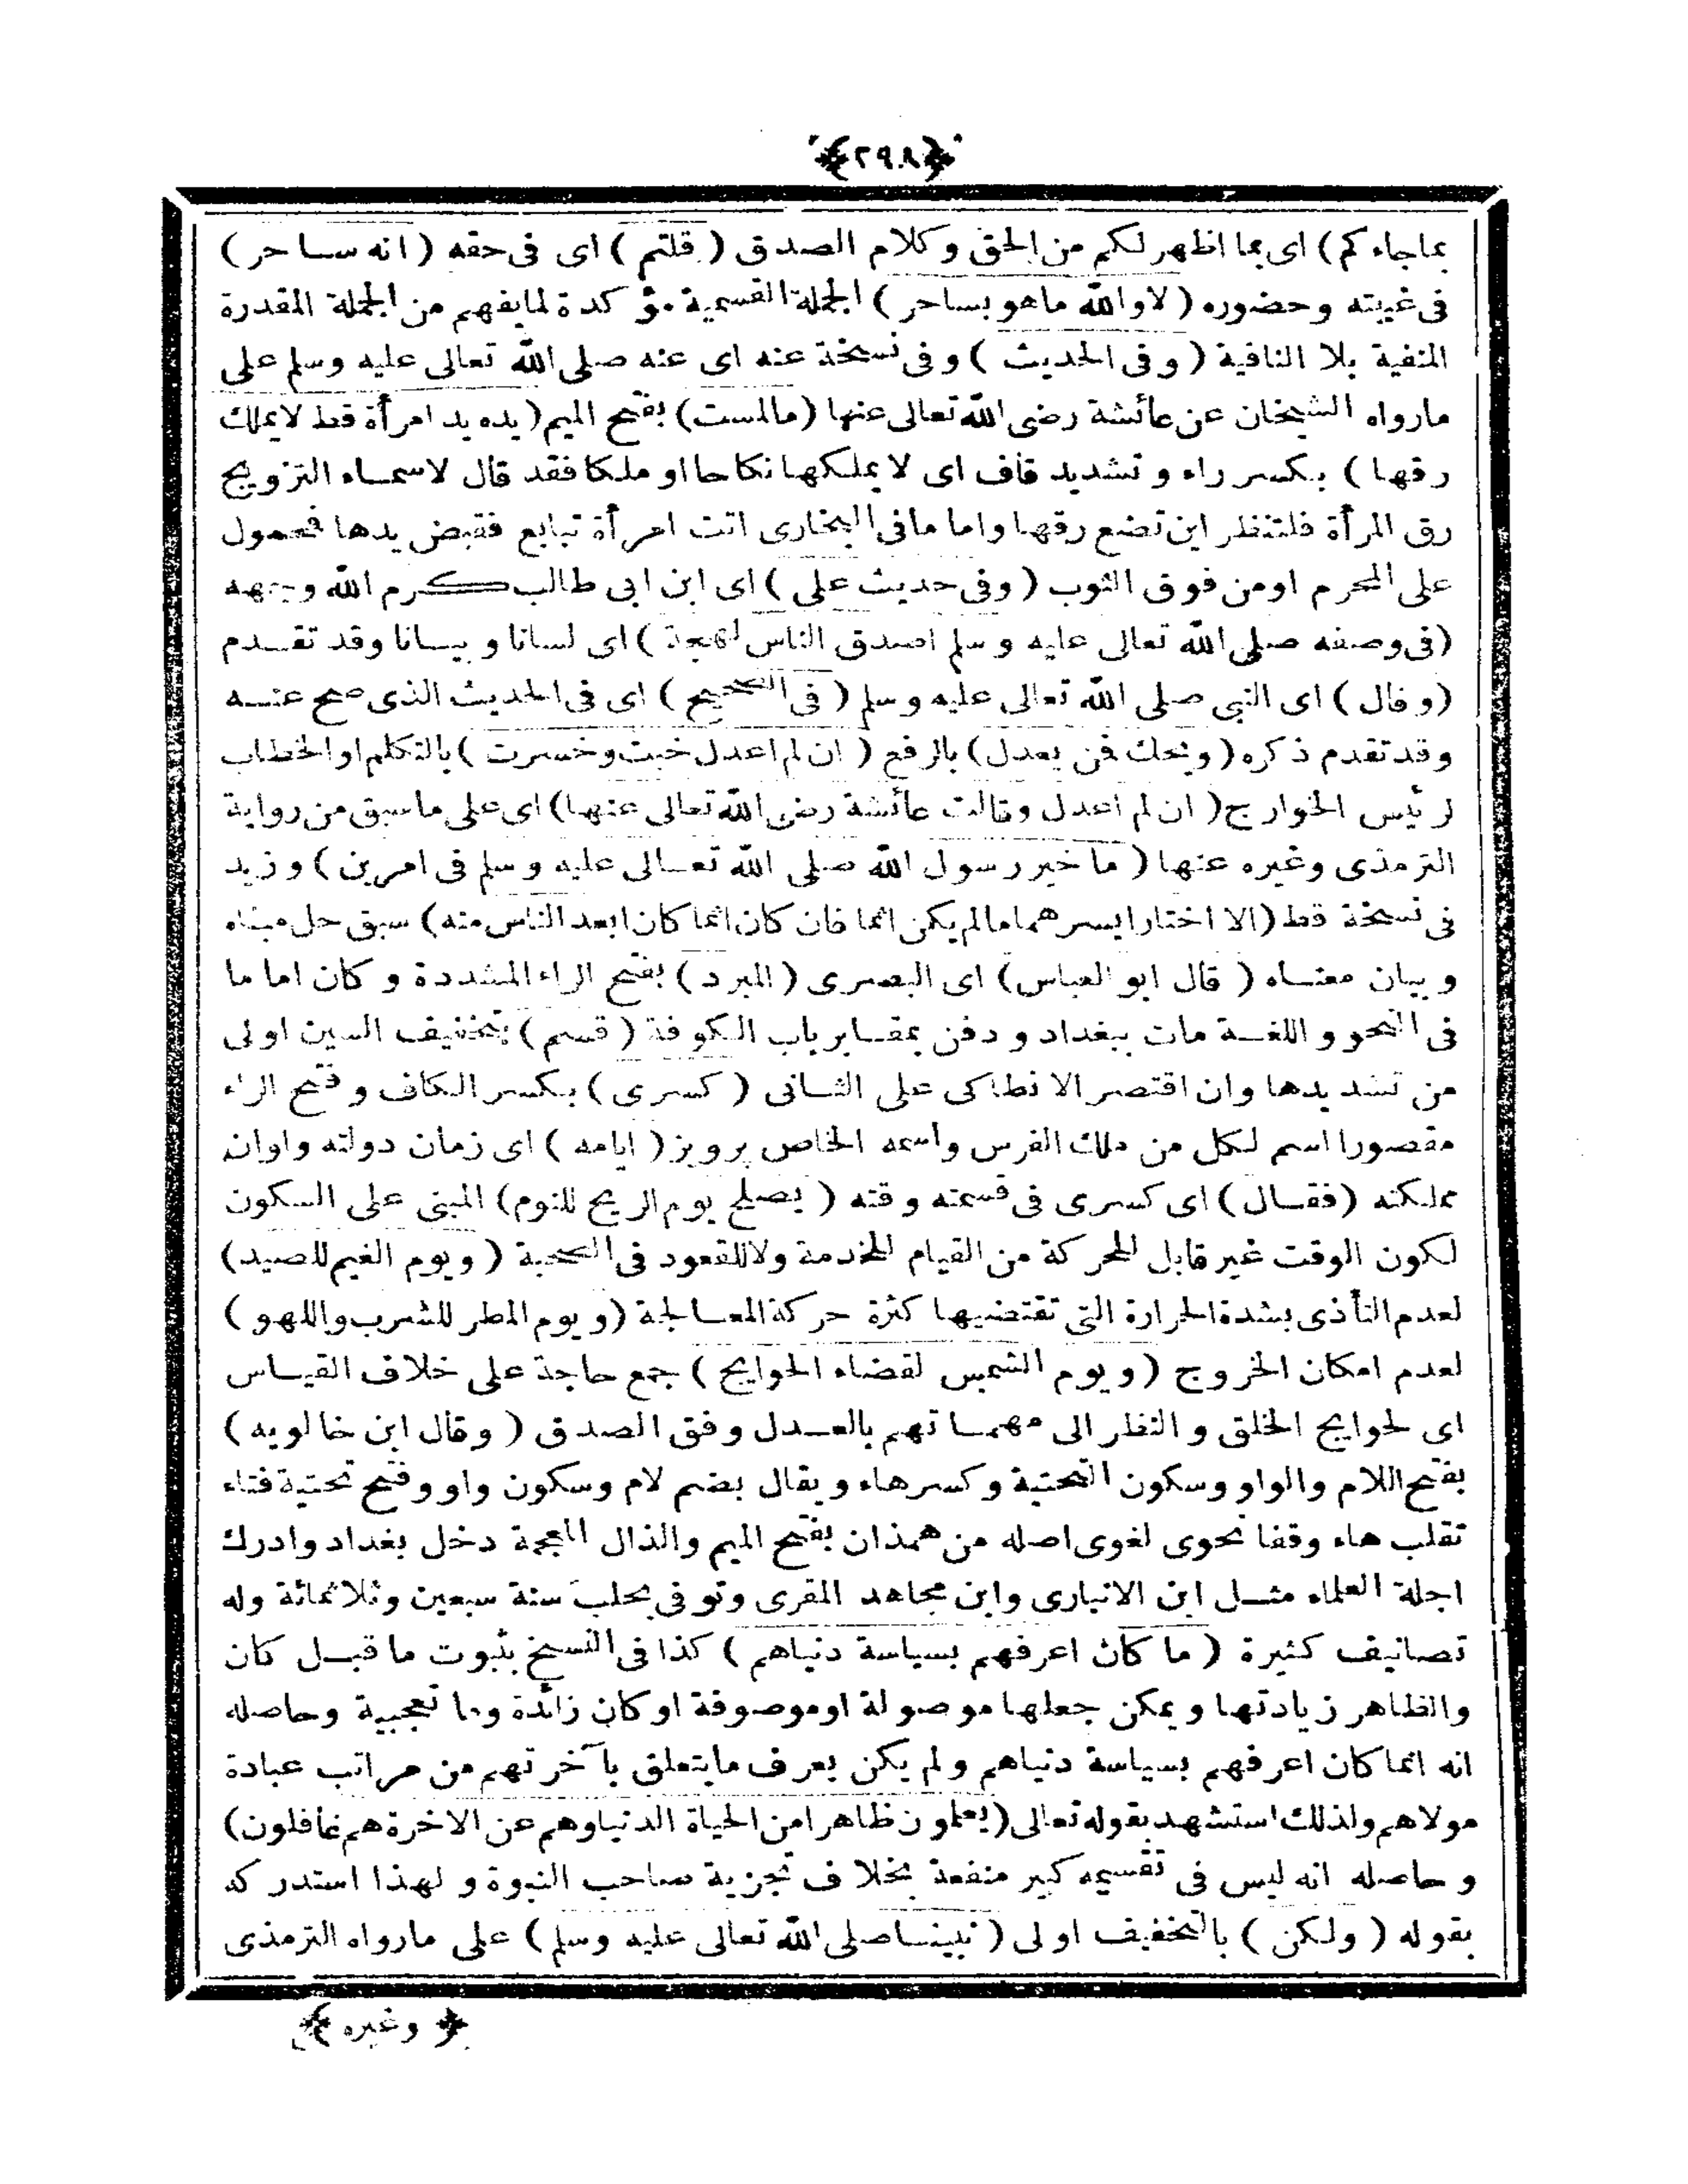 ﴿٢٩٨﴾
بما جاءكم) اى بما اظهر لكم من الحق وكلام الصدق (قلتم) اى فى حقه (انه ساحر)
فى غيبته وحضوره (لا والله ما هو بساحر) الجملة القسمية مؤكدة لما يفهم من الجملة المقدرة
المنفية بلا النافية (وفى الحديث) وفى نسخة عنه اى عنه صلى الله تعالى عليه وسلم على
مارواه الشيخان عن عائشة رضى الله تعالى عنها (مالمست) بفتح الميم (يده يد امرأة قط لايملك
رقها) بكسر راء وتشديد قاف اى لا يملكها نكاحا او ملكا فقد قال لاسماء التزويج
رق المرأة فلتنظر اين تضع رقها واما مافى البخارى اتت امرأة تبايع فقبض يدها فمحمول
على المحرم او من فوق الثوب (وفى حديث على) اى ابن ابى طالب كرم الله وجهه
(فى وصفه صلى الله تعالى عليه وسلم اصدق الناس لهجة) اى لسانا وبيانا وقد تقدم
(وقال) اى النبى صلى الله تعالى عليه وسلم (فى الصحيح) اى فى الحديث الذى صح عنه
وقد تقدم ذكره (ويحك فمن يعدل) بالرفع (ان لم اعدل خبت وخسرت) بالتكلم او الخطاب
لرئيس الخوارج (ان لم اعدل وقالت عائشة رضى الله تعالى عنها) اى على ما سبق من رواية
الترمذى وغيره عنها (ما خير رسول الله صلى الله تعالى عليه وسلم فى امرين) وزيد
فى نسخة قط (الا اختار ايسرهما مالم يكن اثما فان كان اثما كان ابعد الناس منه) سبق حل مبناه
وبيان معناه (قال ابو العباس) اى البصرى (المبرد) بفتح الراء المشددة وكان اماما
فى النحو واللغة مات ببغداد ودفن بمقابر باب الكوفة (قسم) بتخفيف السين اولى
من تشديدها وان اقتصر الانطاكى على الثانى (كسرى) بكسر الكاف وفتح الراء
مقصورا اسم لكل من ملك الفرس واسمه الخاص برويز (ايامه) اى زمان دولته واوان
مملكته (فقال) اى كسرى فى قسمته وقته (يصلح يوم الريح للنوم) المبنى على السكون
لكون الوقت غير قابل للحركة من القيام للخدمة ولا للقعود فى الصحبة (ويوم الغيم للصيد)
لعدم التأذى بشدة الحرارة التى تقتضيها كثرة حركة المعالجة (ويوم المطر للشرب واللهو)
لعدم امكان الخروج (ويوم الشمس لقضاء الحوايج) جمع حاجة على خلاف القياس
اى لحوايج الخلق والنظر الى مهماتهم بالعدل وفق الصدق (وقال ابن خالويه)
بفتح اللام والواو وسكون التحتية وكسر هاء ويقال بضم لام وسكون واو وفتح تحتية فتاء
تقلب هاء وقفا نحوى لغوى اصله من همذان بفتح الميم والذال المعجمة دخل بغداد وادرك
اجلة العلماء مثل ابن الانبارى وابن مجاهد المقرى وتوفى بحلب سنة سبعين وثلاثمائة وله
تصانيف كثيرة (ما كان اعرفهم بسياسة دنياهم) كذا فى النسخ بثبوت ما قبل كان
والظاهر زيادتها ويمكن جعلها موصولة او موصوفة او كان زائدة وما تعجبية وحاصله
انه انما كان اعرفهم بسياسة دنياهم ولم يكن يعرف ما يتعلق بآخرتهم من مراتب عبادة
مولاهم ولذلك استشهد بقوله تعالى (يعلمون ظاهرا من الحياة الدنيا وهم عن الاخرة هم غافلون)
وحاصله انه ليس فى تقسيمه كبير منفعة بخلاف تجزية صاحب النبوة ولهذا استدركه
بقوله (ولكن) بالتخفيف اولى (نبينا صلى الله تعالى عليه وسلم) على مارواه الترمذى
﴿ وغيره ﴾